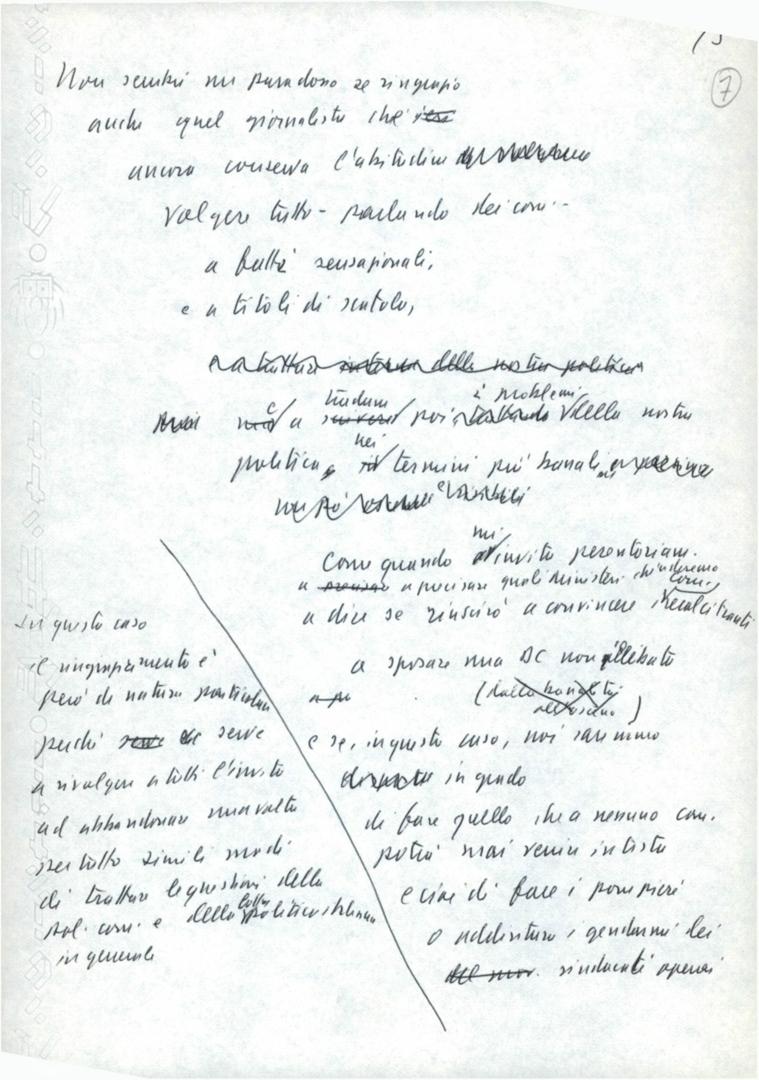 7
Non sembri un paradosso se ringrazio
anche quel giornalista che
ancora conserva l'abitudine
volgere tutto - parlando dei com. -
a fatti sensazionali,
e a titoli di scatola,
e a trattare della nostra politica
tradurre i problemi
e a poi della nostra
nei
politica, termini più banali
mi
Come quando invita perentoriam.
a a precisare quali ministeri chiederemo
a dire se riuscirò a convincere i com. recalcitranti
a sposare una DC non illibata
(dalla banalità
all'osceno)
e se, in questo caso, noi saremmo
in grado
di fare quello che a nessuno com.
potrà mai venire in testa
e cioè di fare i pompieri
o addirittura i gendarmi dei
sindacati operai
In questo caso
il ringraziamento è
però di natura particolare
perché serve
a rivolgere a tutti l'invito
ad abbandonare una volta
per tutte simili modi
di trattare le questioni della
pol. com. e della lotta politica italiana
in generale